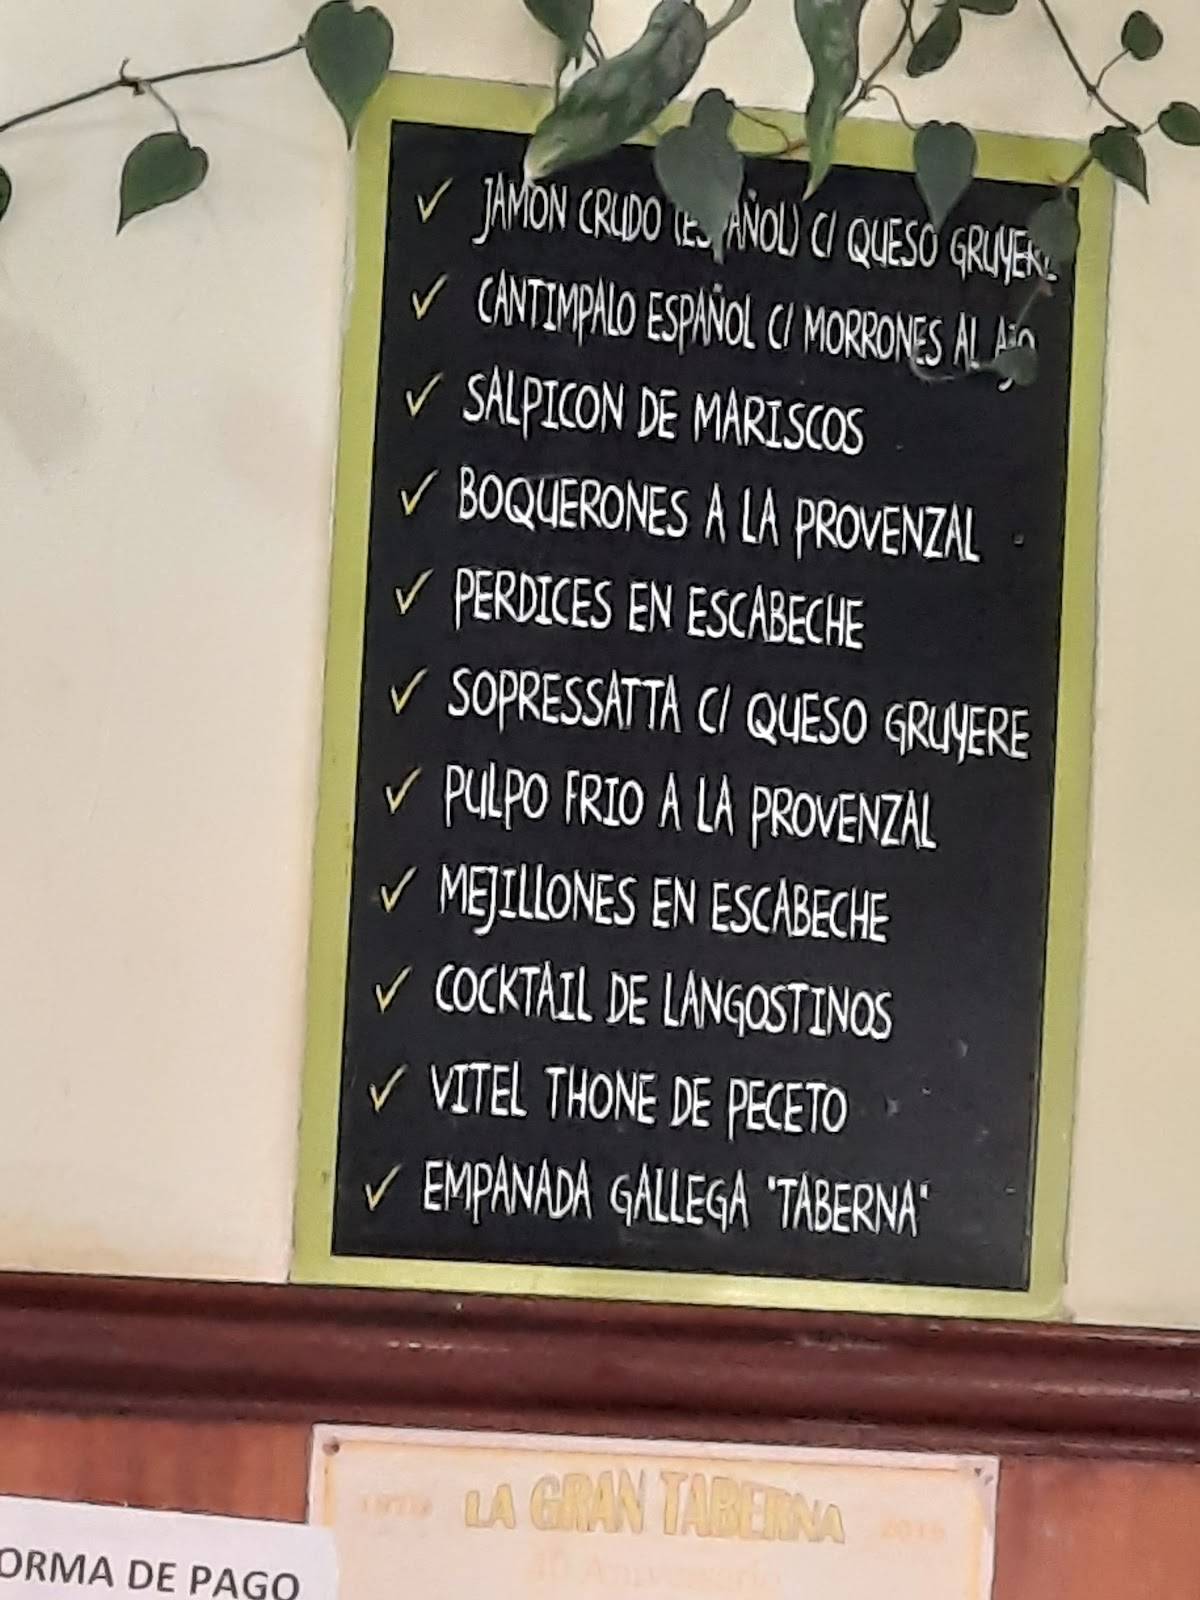 JAMON CRUDO (ESPAÑOL) C/ QUESO GRUYERE
CANTIMPALO ESPAÑOL C/ MORRONES AL AJO
SALPICON DE MARISCOS
BOQUERONES A LA PROVENZAL
PERDICES EN ESCABECHE
SOPRESSATTA C/ QUESO GRUYERE
PULPO FRIO A LA PROVENZAL
MEJILLONES EN ESCABECHE
COCKTAIL DE LANGOSTINOS
VITEL THONE DE PECETO
EMPANADA GALLEGA "TABERNA"
LA GRAN TABERNA
ORMA DE PAGO